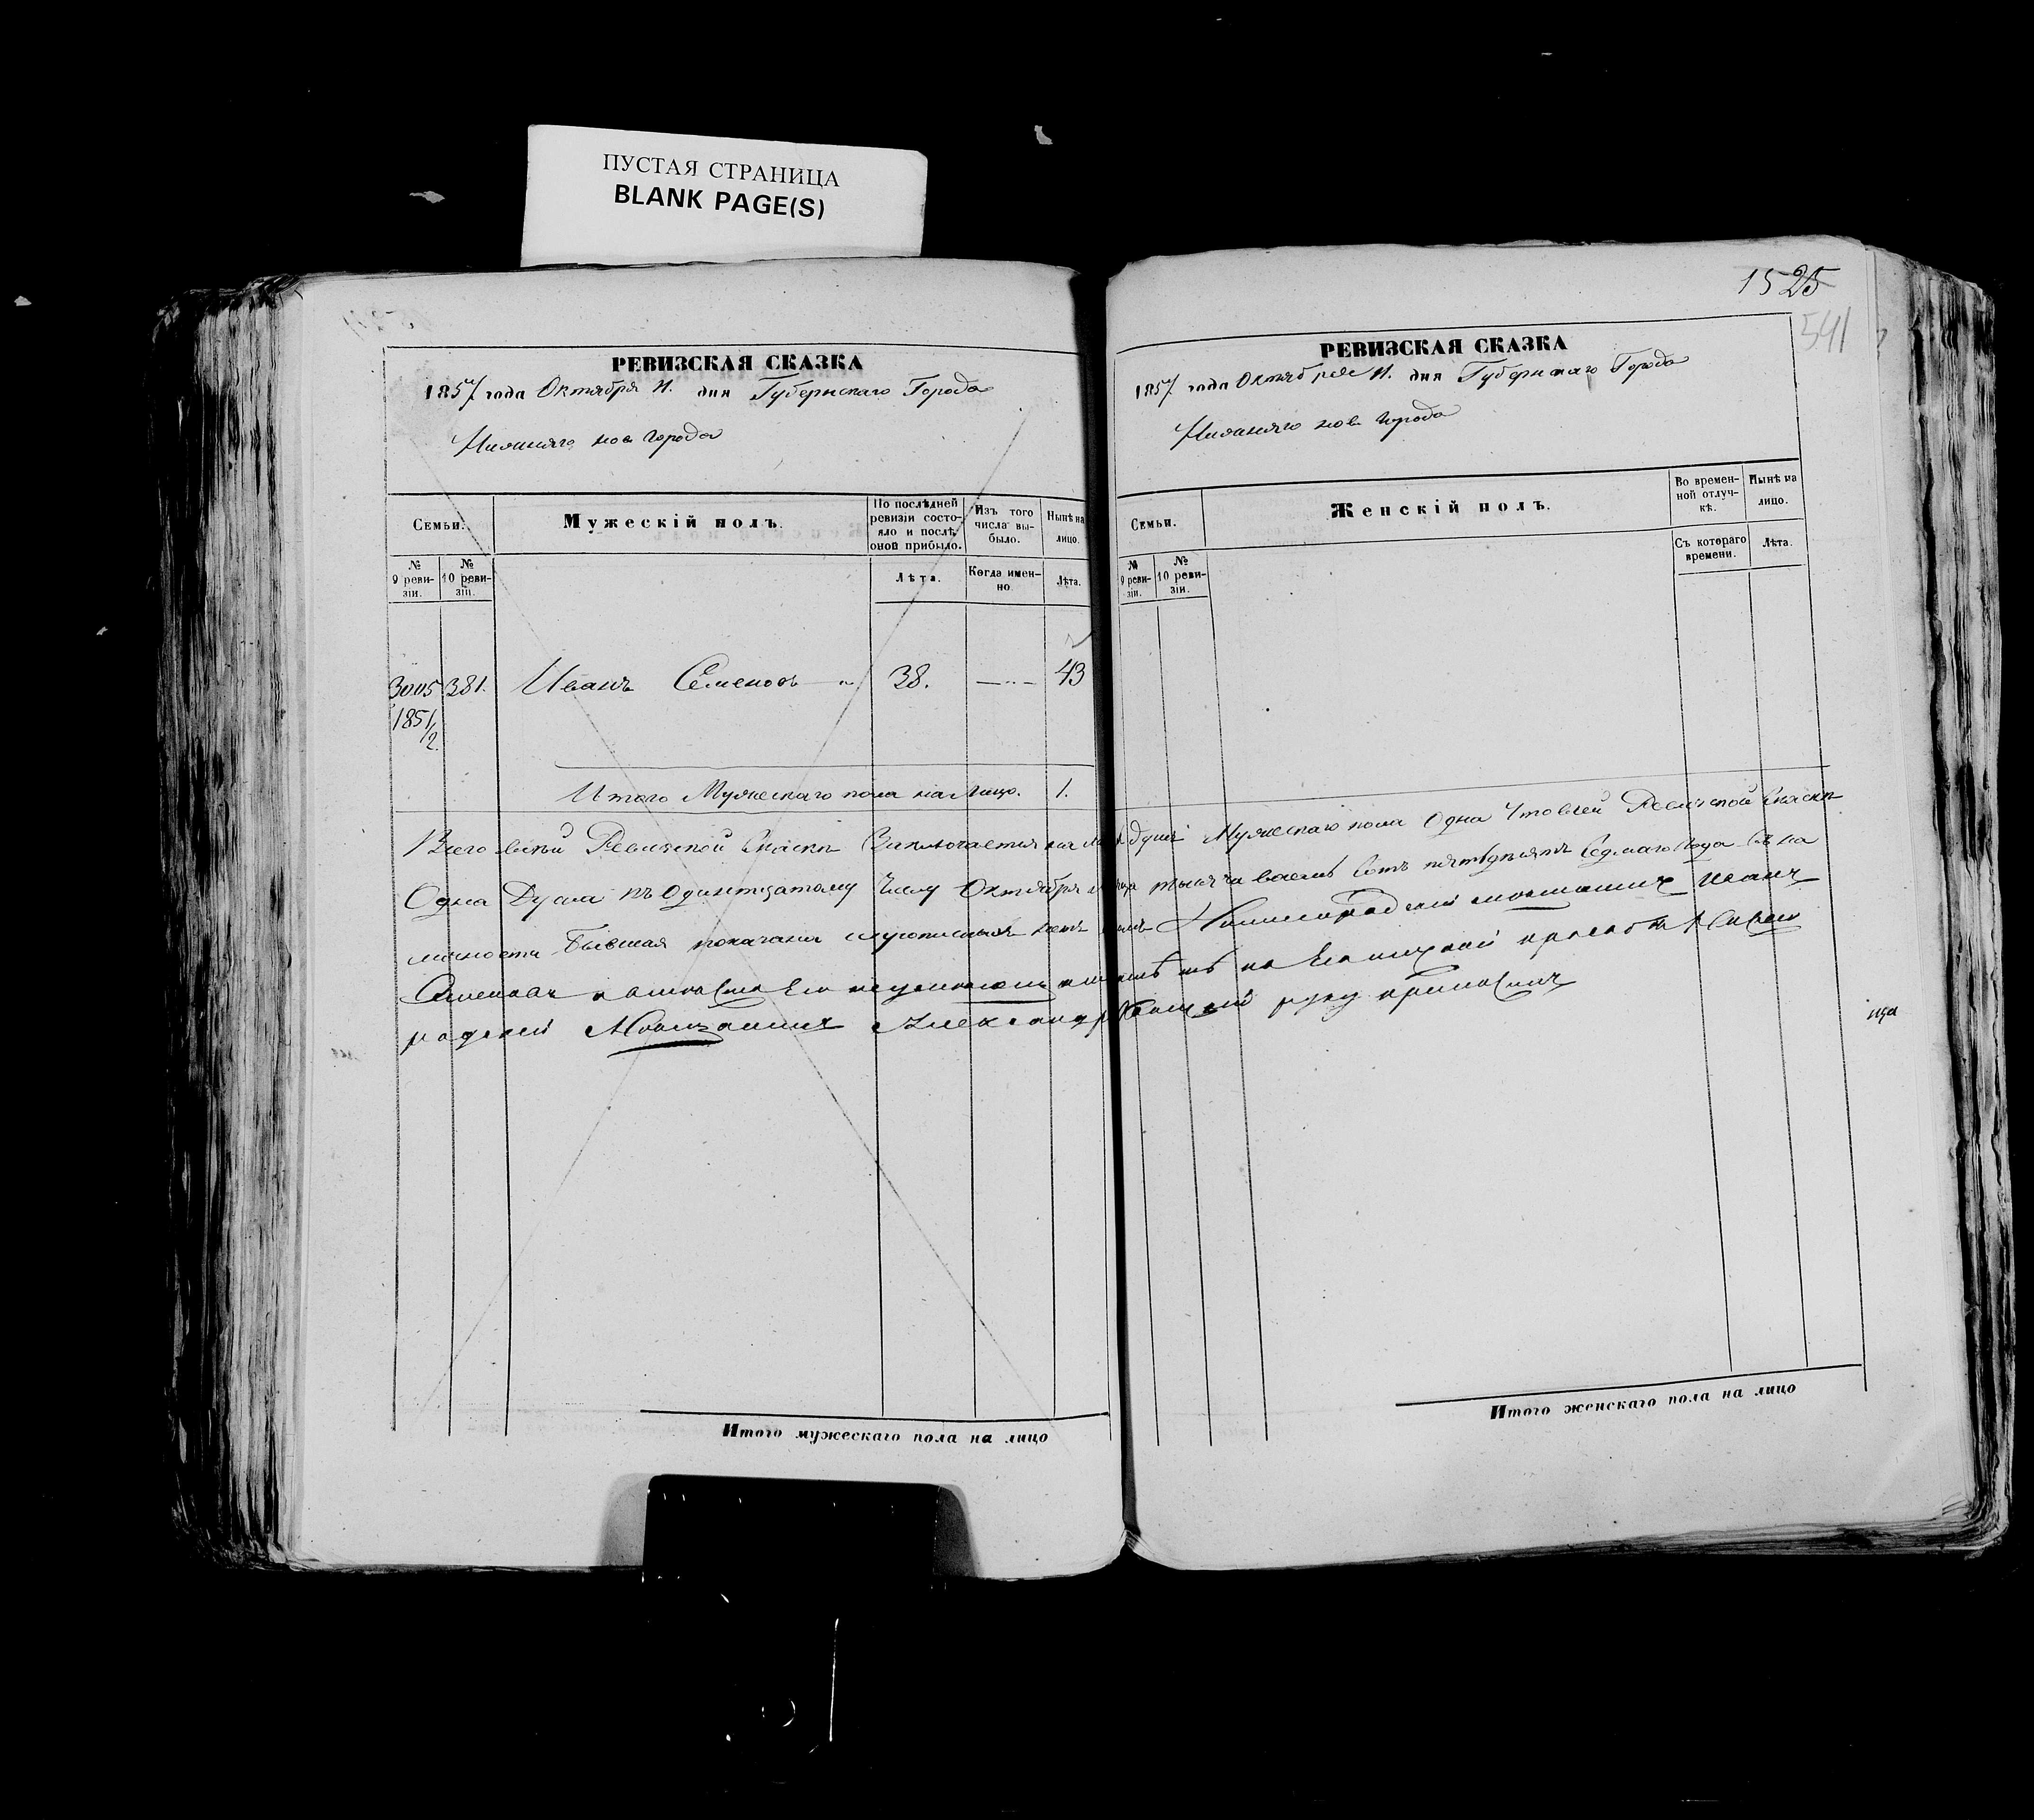 ПУСТАЯ СТРАНИЦА
BLANK PAGE(S)
РЕВИЗСКАЯ СКАЗКА
1857 года Октября 11. дня Губернскаго Города
Нижняго нов города
Семьи.
Мужескій полъ.
По послѣдней ревизіи состояло и послѣ оной прибыло.
Изъ того числа выбыло.
Нынѣ на лицо.
№ 9 ревизіи.
№ 10 ревизіи.
Лѣта.
Когда именно
Лѣта.
3005 381. Иванъ Семеновъ 38. 43
1851/2.
Итого Мужескаго пола на Лицо. 1.
1525
541
РЕВИЗСКАЯ СКАЗКА
1857. года Октября 11. дня Губернскаго Города
Нижняго нов города
Семьи.
Женскій полъ.
Во временной отлучкѣ.
Нынѣ на лицо.
№ 9 ревизіи.
№ 10 ревизіи.
Съ котораго времени.
Лѣта.
Всего всей Ревизской Сказкѣ Заключается на душъ Мужескаго пола Одна Что всей Ревизской Сказкѣ
Одна Душа къ Одинтцатому Числу Октября тысяча восемь Сотъ пятьдесятъ Седмаго Года въ на
личности Бывшая показана нетъ Нижегородский Иванъ
Семеновъ а вместо его неумеющаго по его личной прозбе
радский Мещанинъ Александръ руку приложилъ
Итого мужескаго пола на лицо
Итого женскаго пола на лицо